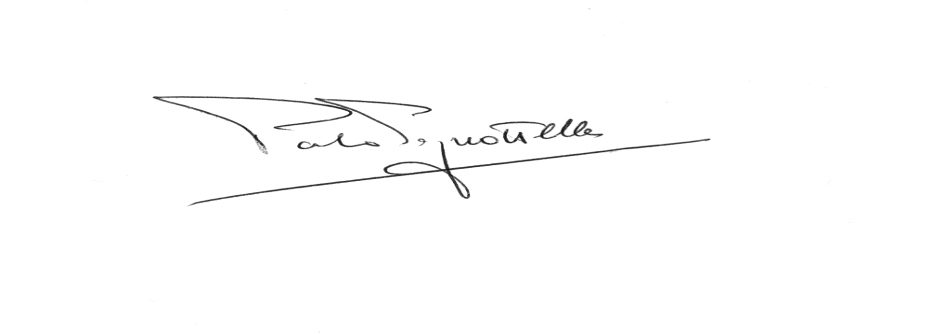 Paolo Pignottelli